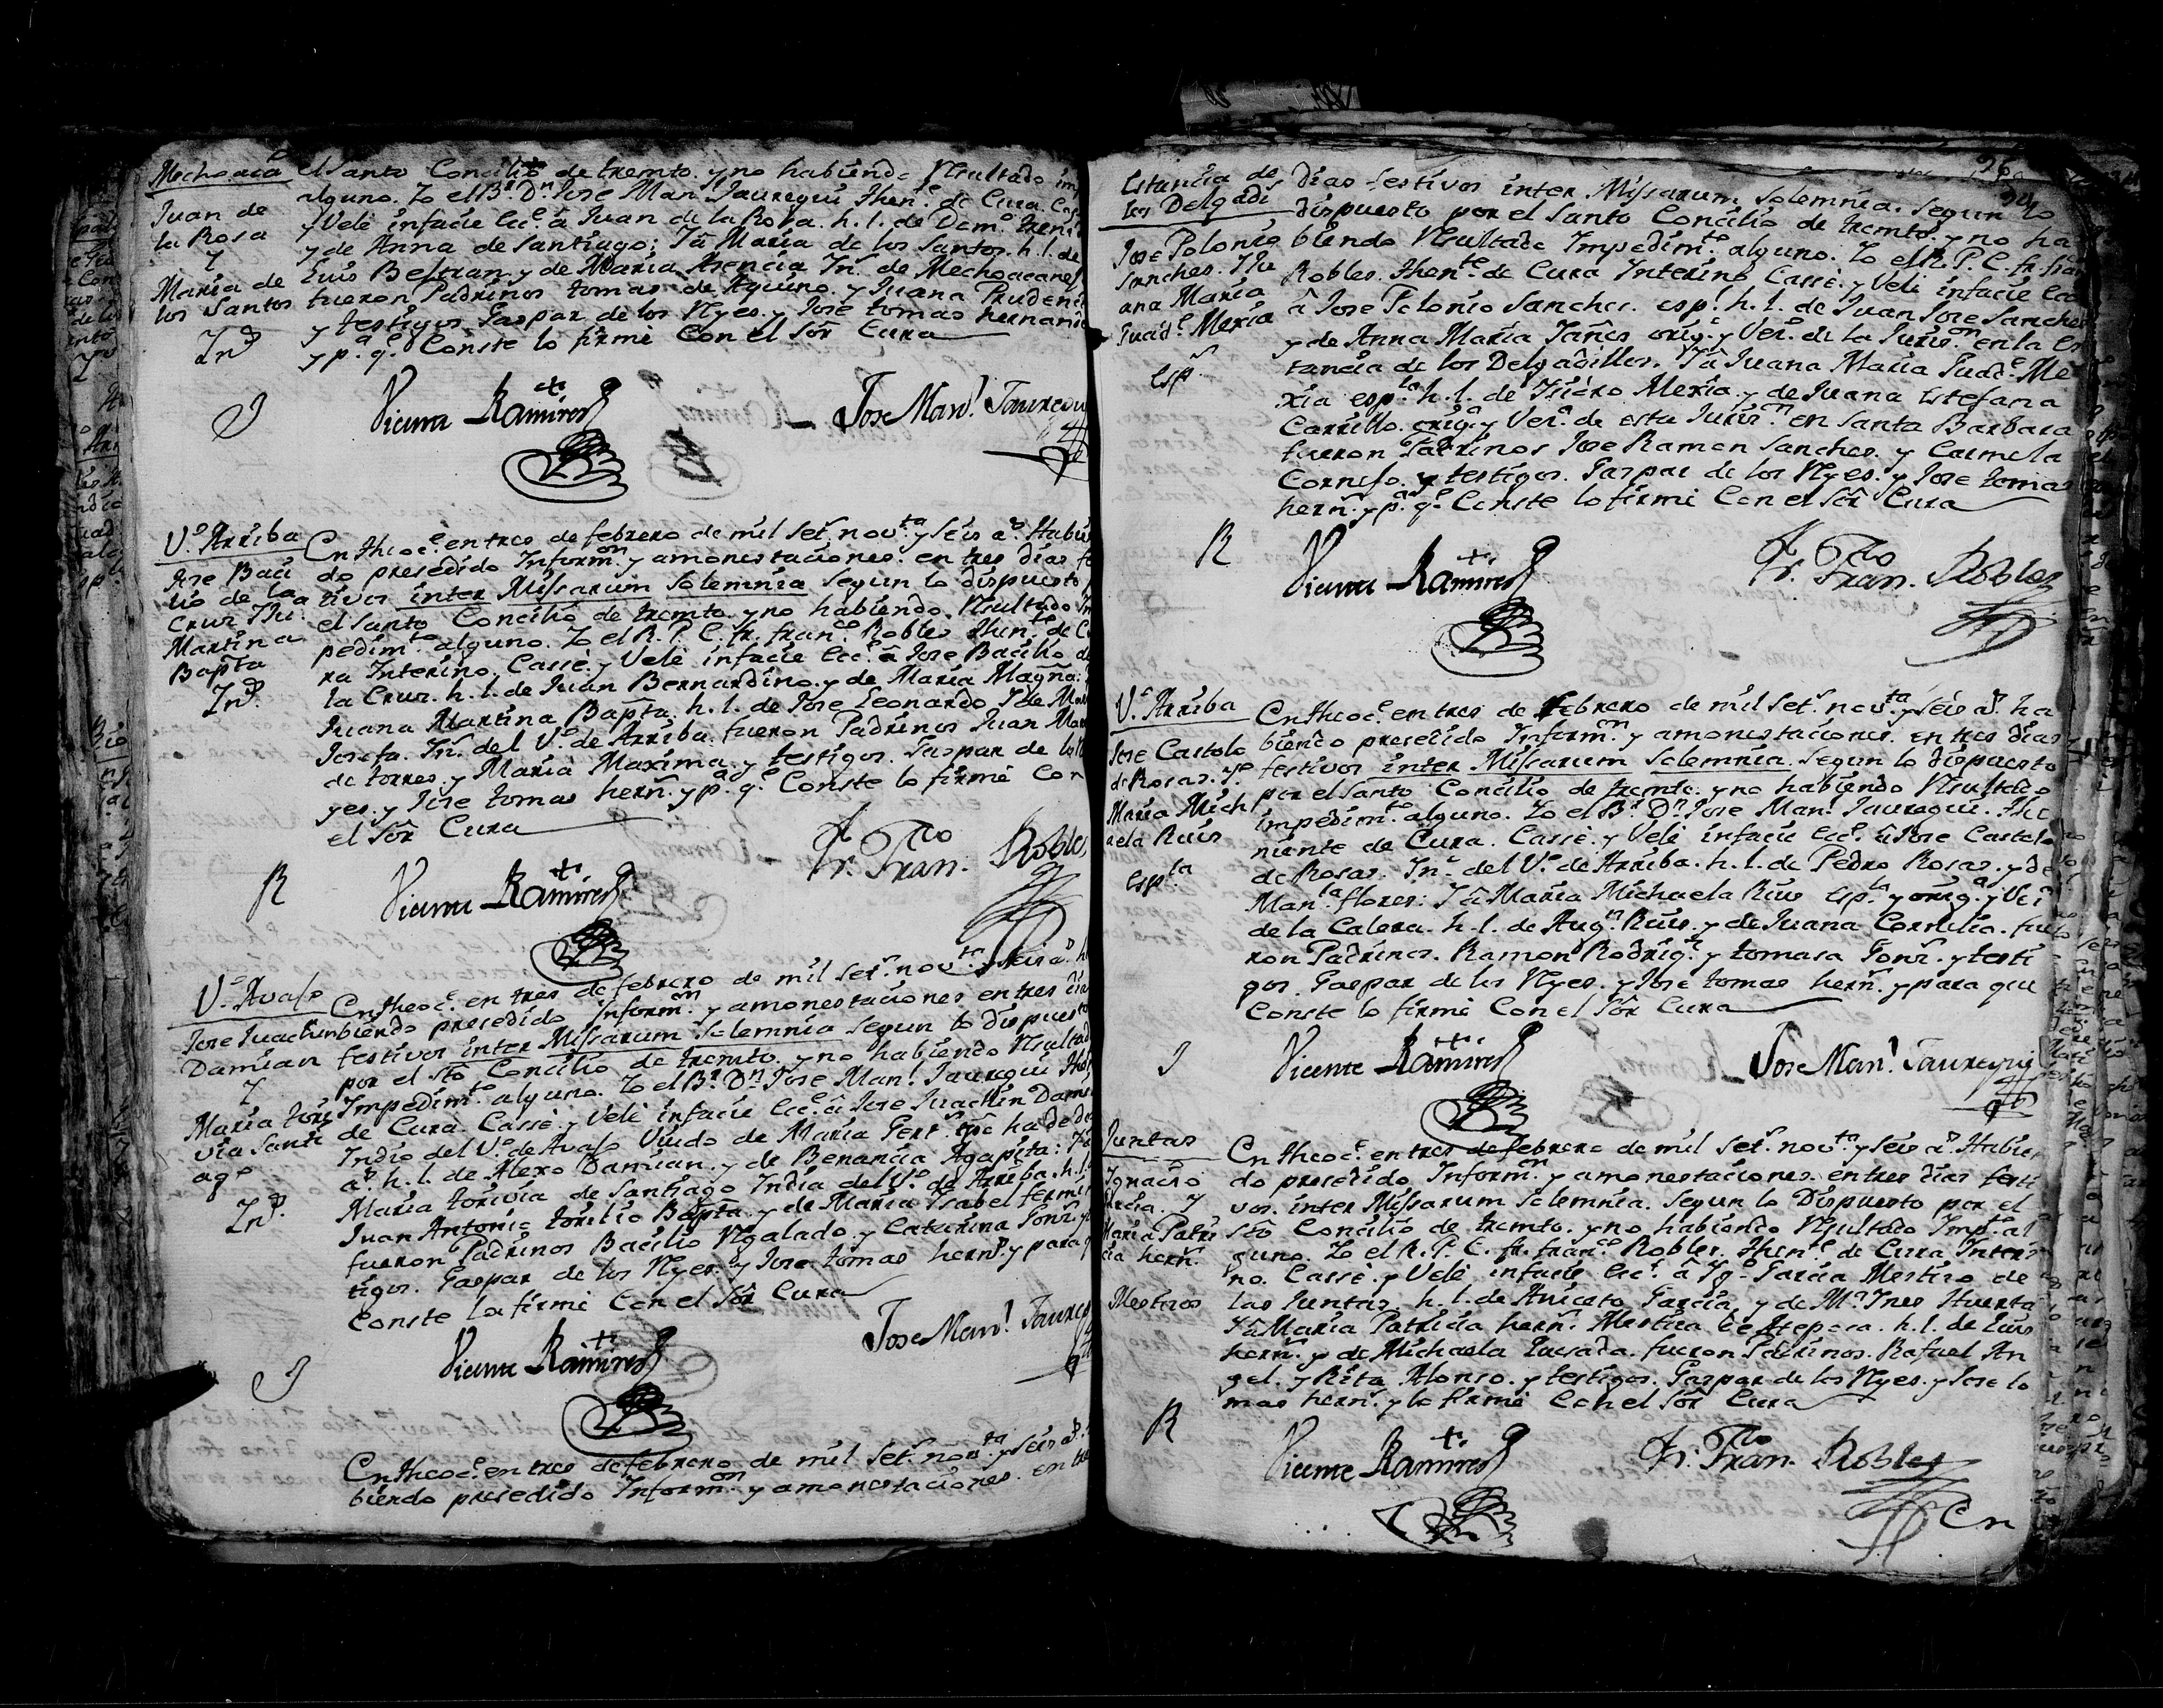 Mechoacã
Juan de
la Rosa
Y
Maria de
los Santos
Ind.s
el santo Concilio de tremto. y no habiendo Resultado im
alguno. Yo el B.r D.n Jose Man.l Jauregui Then.e de Cura Cas
y Velè infacie Ecc.e â Juan de la Rosa. h. l. de Dom.o
y de Anna de Santiago; Yâ Maria de los Santos. h. l. de
Luis Beltran. y de Maria Asencia In.s de Mechoacanes
fueron Padrinos tomas de Aquino. y Juana
y testigos Gaspar de los Reyes. y Jose tomas hernand
y p.a q.e Conste lo firmè Con el Sôr Cura
J Vicente Ramires Jose Man.l Jauregui
V.o Arriba
Jose Baci
lio de la
Cruz Y Ju.a
Martina
Bapta
Ind.s
En theoc.e en tres de febrero de mil set.s nov.ta y seis a.s Habien
do presedido Inform.on y amonestaciones. en tres dias fes
tivos inter Missarum Solemnia segun lo dispuesto
el santo Concilio de tremto. y no habiendo. Resultado Im
pedim.to alguno. Yo el R. P. C. fr. fran.co Robles then.te de Cu
ra Interino, Cassè. y Velè infacie Ecc.e â Jose Bacilio de
la Cruz. h. l. de Juan Bernardino. y de Maria Magña:
Juana Martina Bapta. h. l. de Jose Leonardo Y de
Josefa. In.s del V.o de Arriba. fueron Padrinos Juan
de torres. y Maria Maxima. y testigos. Gaspar de los Re
yes. y Jose tomas herñ. y p.a q.e Conste lo firmè Con
el Sôr Cura
R Vicente Ramires Fr. Fran.co Robles
V.o Avajo
Jose Juachin
Damian
Y
Maria tori
via Santi
ag.o
Ind.s
En theoc.e en tres de febrero de mil set.s nov.ta y seis a.s ha
biendo presedido Inform.on y amonestaciones en tres dias
festivos inter Missarum Solemnia segun lo dispuesto
por el sto Concilio de tremto. y no habiendo Resultado
Impedim.to alguno. Yo el B.r D.n Jose Man.l Jauregui
de Cura. Cassè. y Velè infacie Ecc.e â Jose Juachin Damian
Indio del V.o de Avajo Viudo de Maria Gert.s que ha de dos
a.s h. l. de Alexo Damian. y de Benancia Agapita: Yâ
Maria torivia de Santiago India del V.o de Arriba. h. l.
Juan Antonio torilio Bapta. y de Maria Ysabel
fueron Padrinos Bacilio Regalado. y Catarina Gonz.
tigos. Gaspar de los Reyes. y Jose tomas hern.s y para
Conste lo firmè Con el Sôr Cura
J Vicente Ramires Jose Man.l Jauregui
En theoc.e en tres de febrero de mil set.s nov.ta y seis a.s
biendo presedido Inform.on y amonestaciones. en tres
Estancia de
los Delgadi
Jose Polonio
Sanches. Y Ju
ana Maria
Guad.e Mexia
Esp.s
dias festivos inter Missarum Solemnia. segun lo
dispuesto por el santo Concilio de tremto. y no ha
biendo Resultado Impedim.to alguno. Yo el R. P. C. fr. fran
Robles. then.te de Cura Interino Cassè. y Velè infacie Ecc
â Jose Polonio Sanches. esp.l h. l. de Juan Jose Sanches
y de Anna Maria Yañes orig.o y Ver.o de la Juris.on en la Es
tancia de los Delgadillos. Yâ Juana Maria Guad.e Me
xia esp.la h. l. de Isidro Mexia. y de Juana Estefana
Carrillo. orig.a y Vec.a de esta Juris.on en Santa Barbara
fueron Padrinos Jose Ramon Sanches. y Carmela
Cornejo. y testigos. Gaspar de los Reyes. y Jose tomas
herñ. y p.a q.e Conste lo firmè Con el Sôr Cura
R Vicente Ramires Fr. Fran.co Robles
V.o Arriba
Jose Castolo
de Rosas. y
Maria Mich
aela Ruis
Esp.la
En theoc.e en tres de febrero de mil set.s nov.ta y seis a.s ha
biendo presedido Inform.on y amonestaciones. en tres dias
festivos inter Missarum Solemnia. segun lo dispuesto
por el santo Concilio de tremto. y no habiendo Resultado
impedim.to alguno. Yo el B.r D.n Jose Man.l Jauregui. the
niente de Cura. Cassè. y Velè infacie Ecc.e â Jose Castolo
de Rosas. In.o del V.o de Arriba. h. l. de Pedro Rosas. y de
Man.la flores: Yâ Maria Michaela Ruis Esp.la y orig.a y Ve
de la Calera. h. l. de Aug.n Ruis. y de Juana Cornelia. fue
ron Padrinos. Ramon Rodrig.z y tomasa Gonz. y testi
gos. Gaspar de los Reyes. y Jose tomas herñ. y para que
Conste lo firmè Con el Sôr Cura
J Vicente Ramires Jose Man.l Jauregui
Juntas
Ygnacio
Garcia. Y
Maria Patri
cia herñ.
Mestisos
En theoc.e en tres de febrero de mil set.s nov.ta y seis a.s Habien
do presedido Inform.on y amonestaciones. en tres dias festi
vos. inter Missarum Solemnia. segun lo Dispuesto por el
Sto Concilio de tremto. y no habiendo Resultado Imp.to al
guno. Yo el R. P. C. fr. fran.co Robles. then.e de Cura Interi
no. Cassè. y Velè infacie Ecc.e â Yg.o Garcia Mestiso de
las Juntas. h. l. de Aniceto Garcia. y de M.a Ines Huerta
Yâ Maria Patricia herñ. Mestisa de Atepeca. h. l. de Luis
herñ. y de Michaela Quesada. fueron Padrinos. Rafael An
gel. y Rita Alonso. y testigos. Gaspar de los Reyes. y Jose to
mas herñ. y lo firmè Con el Sôr Cura
R Vicente Ramires Fr. Fran.co Robles
En